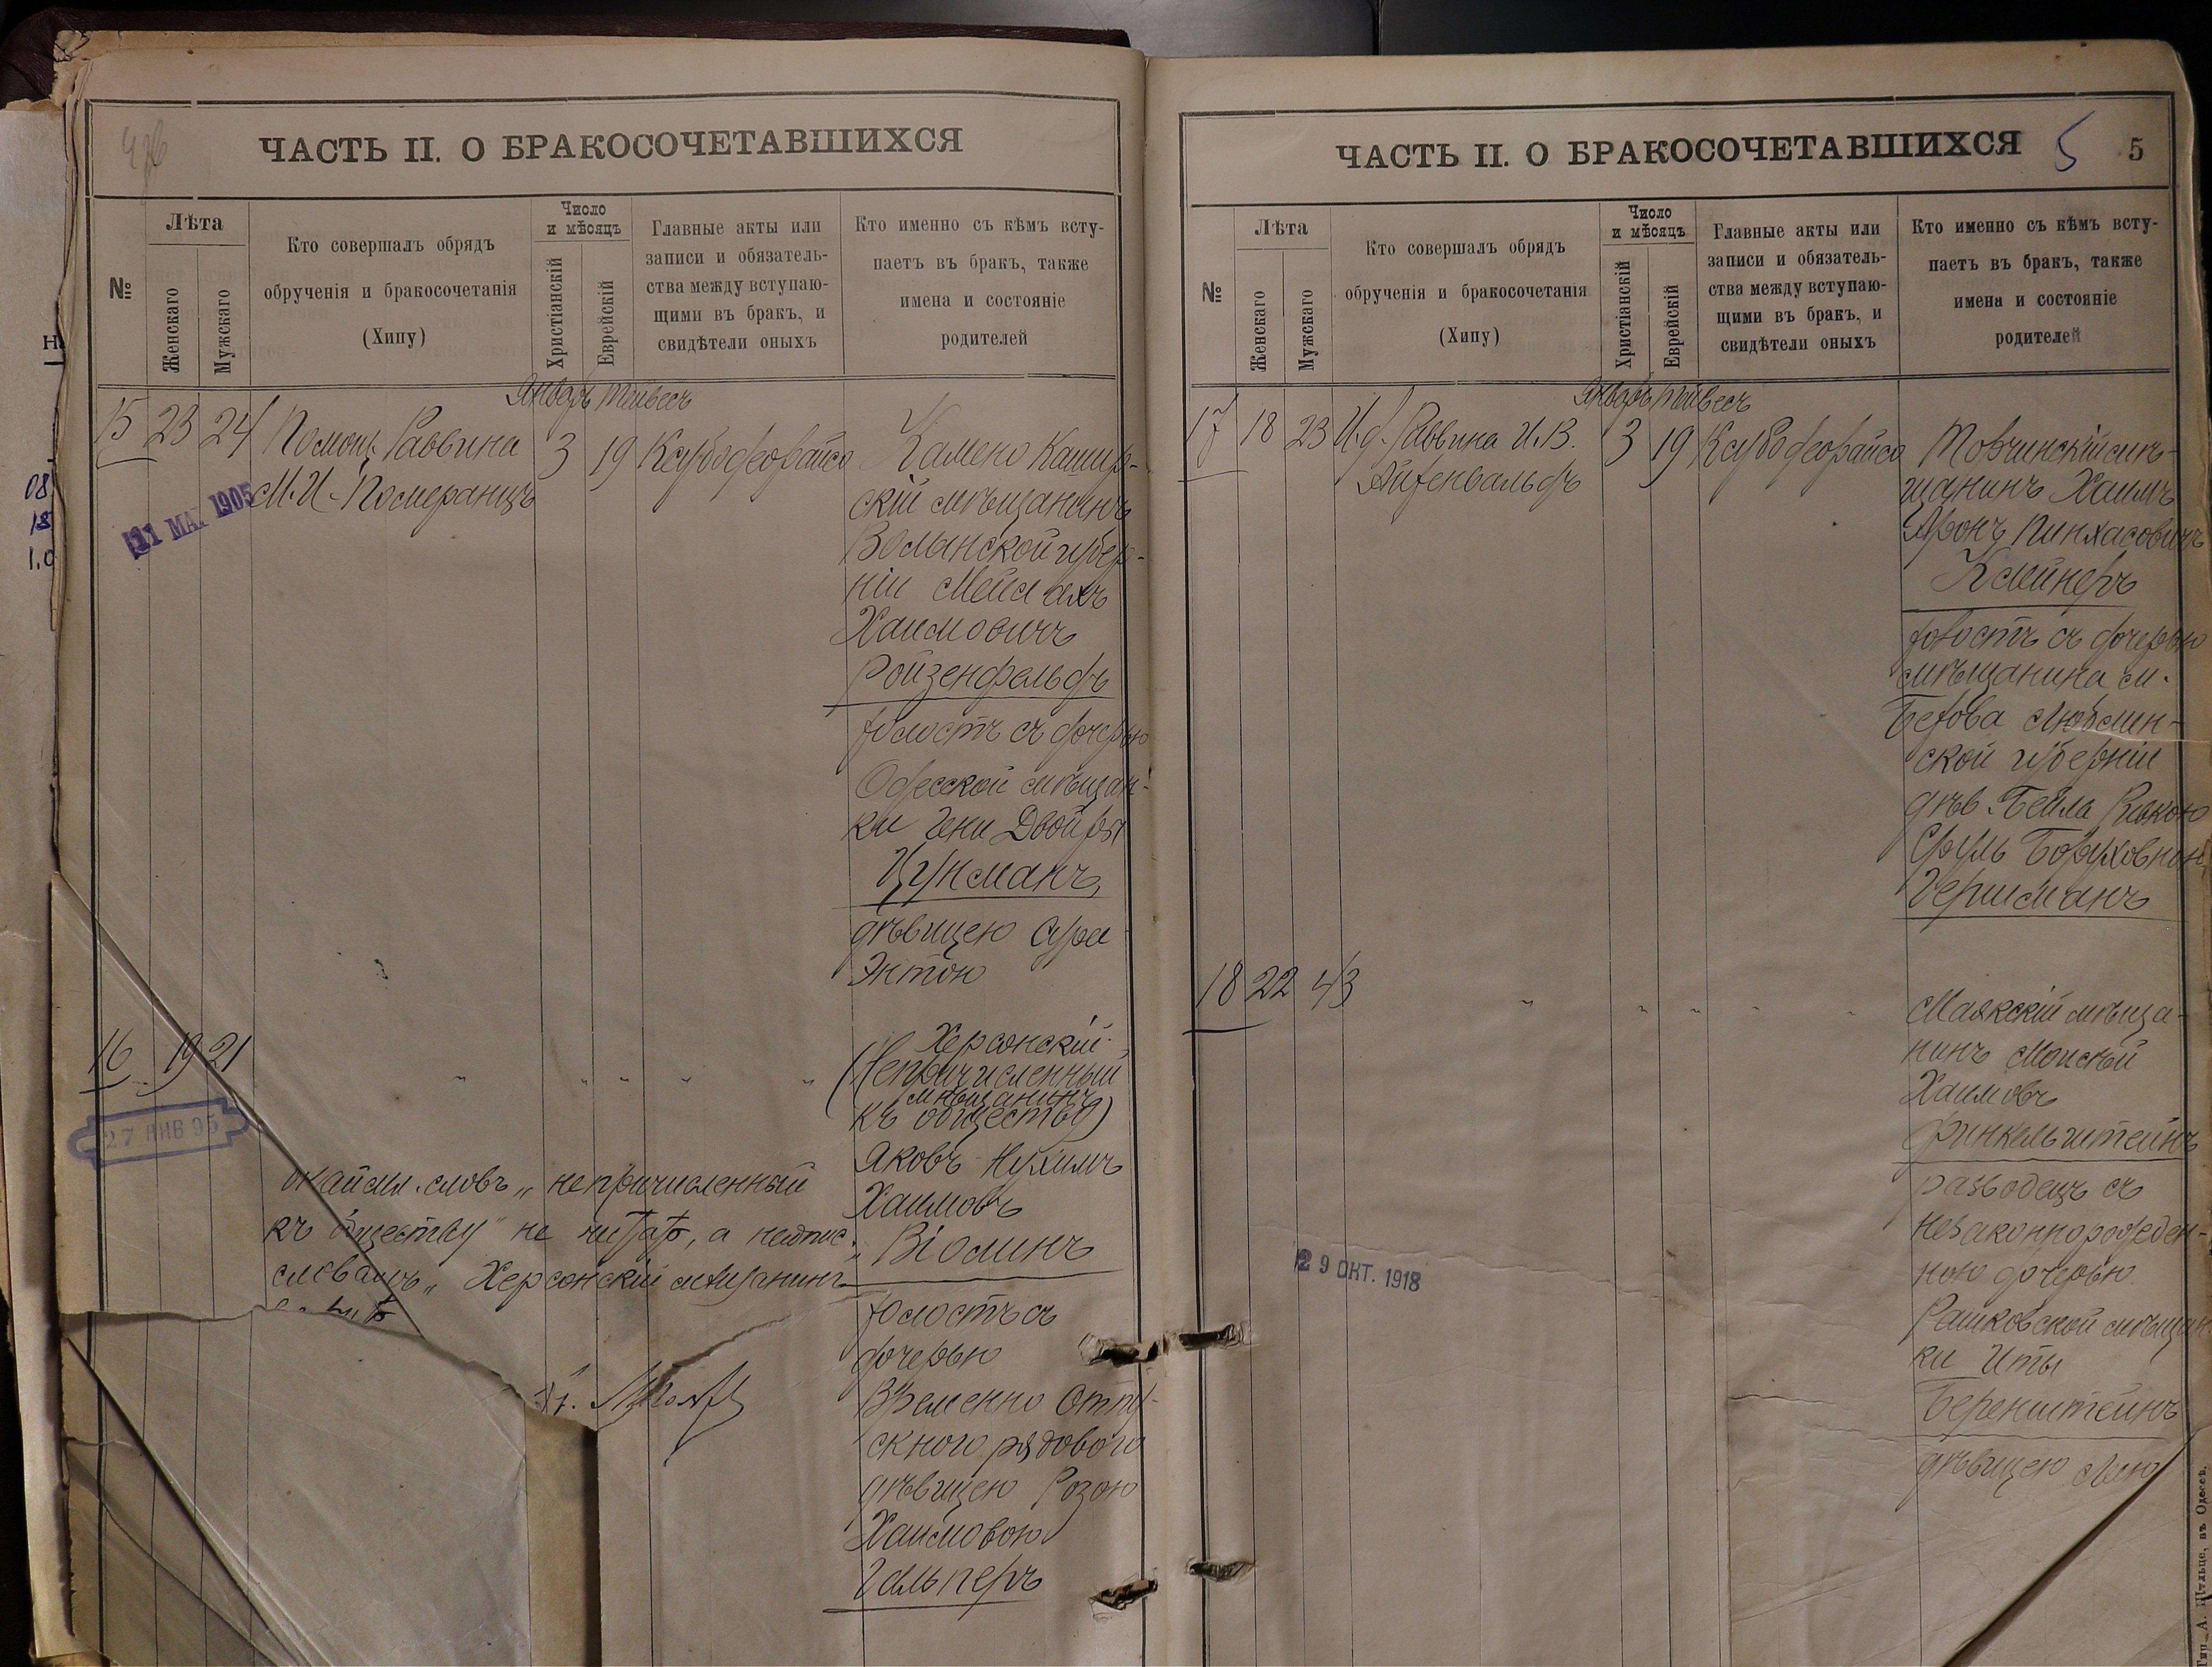 ЧАСТЬ II. О БРАКОСОЧЕТАВШИХСЯ
№
Лѣта
Женскаго
Мужскаго
Кто совершалъ обрядъ
обрученія и бракосочетанія
(Хипу)
Число
и мѣсяцъ
Христіанскій
Еврейскій
Главные акты или
записи и обязатель-
ства между вступаю-
щими въ бракъ, и
свидѣтели оныхъ
Кто именно съ кѣмъ всту-
паетъ въ бракъ, также
имена и состояніе
родителей
Январь Тейвесъ
15 23 24 Помощ. Раввина 3 19
М. И. Померанцъ
11 МАЯ 1905
Камено Кашир-
скій мѣщанинъ
Волынской губер-
ніи Мейлахъ
Хаимовичъ
Ройзенфельдъ
холостъ съ дочерью
Одесской мѣщан-
ки Гени Двойры
Цукманъ,
дѣвицею Сура
Энтою
16 19 21 " " " " "
27 ЯНВ 95
Херсонскій
(Непричисленный
мѣщанинъ
къ обществу)
Яковъ Нухимъ
Хаимовъ
Віолинъ
холостъ съ
дочерью
Временно Отпу-
скного рядового
дѣвицею Розою
Хаимовою
Гальперъ
окаймл. словъ „непричисленный
къ обществу" не читать, а надпис.
словамъ „Херсонскій мѣщанинъ
ЧАСТЬ II. О БРАКОСОЧЕТАВШИХСЯ
5 5
№
Лѣта
Женскаго
Мужскаго
Кто совершалъ обрядъ
обрученія и бракосочетанія
(Хипу)
Число
и мѣсяцъ
Христіанскій
Еврейскій
Главные акты или
записи и обязатель-
ства между вступаю-
щими въ бракъ, и
свидѣтели оныхъ
Кто именно съ кѣмъ всту-
паетъ въ бракъ, также
имена и состояніе
родителей
Январь Тейвесъ
17 18 23 И.д. Раввина И.В. 3 19
Айзенвальдъ
мѣ-
щанинъ Хаимъ
Аронъ Пинхасовичъ
Клейнеръ
холостъ съ дочерью
мѣщанина м.
Люблин-
ской губерніи
дѣв. Бейла Ривкою
Сруль Боруховною
Гершманъ
18 22 43 " " " " "
Маякскій мѣща-
нинъ Моисей
Хаимовъ
Финкельштейнъ
разводецъ съ
незаконнорожден-
ною дочерью
Рашковской мѣщан-
ки Иты
Беренштейнъ
дѣвицею Лею
29 ОКТ. 1918
Тип. А. Шульце, въ Одессѣ.